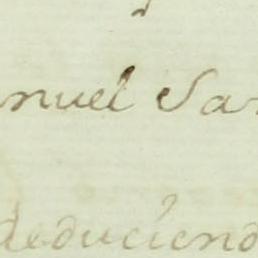 nuel Sar
deduciend